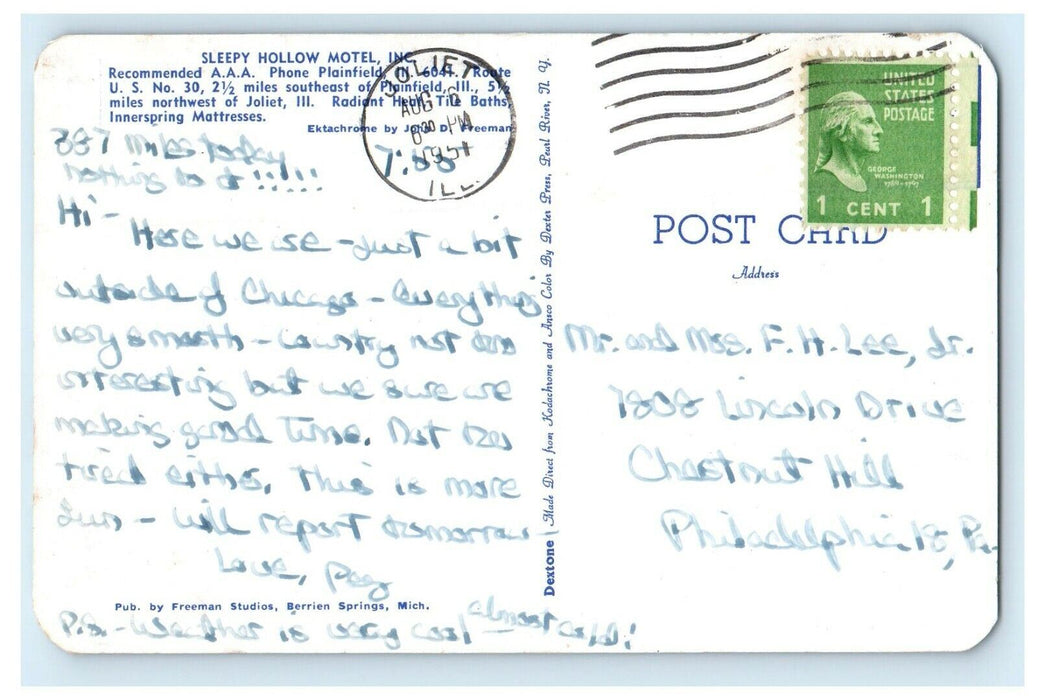 SLEEPY HOLLOW MOTEL, INC.
Recommended A.A.A. Phone Plainfield, Ill. 6041. Route
U. S. No. 30, 2½ miles southeast of Plainfield, Ill., 5½
miles northwest of Joliet, Ill. Radiant Heat, Tile Baths,
Innerspring Mattresses.
Ektachrome by D. Freeman
JOLIET
AUG 6
PM
1951
ILL.
387 miles today
nothing to it!!!!!
7:
Hi-
Here we are - just a bit
outside of Chicago - everything
very smooth - country not too
interesting but we sure are
making good time. Not too
tired either. This is more
fun - will report tomorrow -
Love, Peg
Pub. by Freeman Studios, Berrien Springs, Mich.
P.S. - Weather is very cool - almost cold!
Dextone
Made Direct from Kodachrome and Ansco Color By Dexter Press, Pearl River, N. Y.
UNITED
STATES
POSTAGE
GEORGE
WASHINGTON
1789-1797
1 CENT 1
POST CARD
Address
Mr. and Mrs. F. H. Lee, Jr.
7808 Lincoln Drive
Chestnut Hill
Philadelphia 18, Pa.